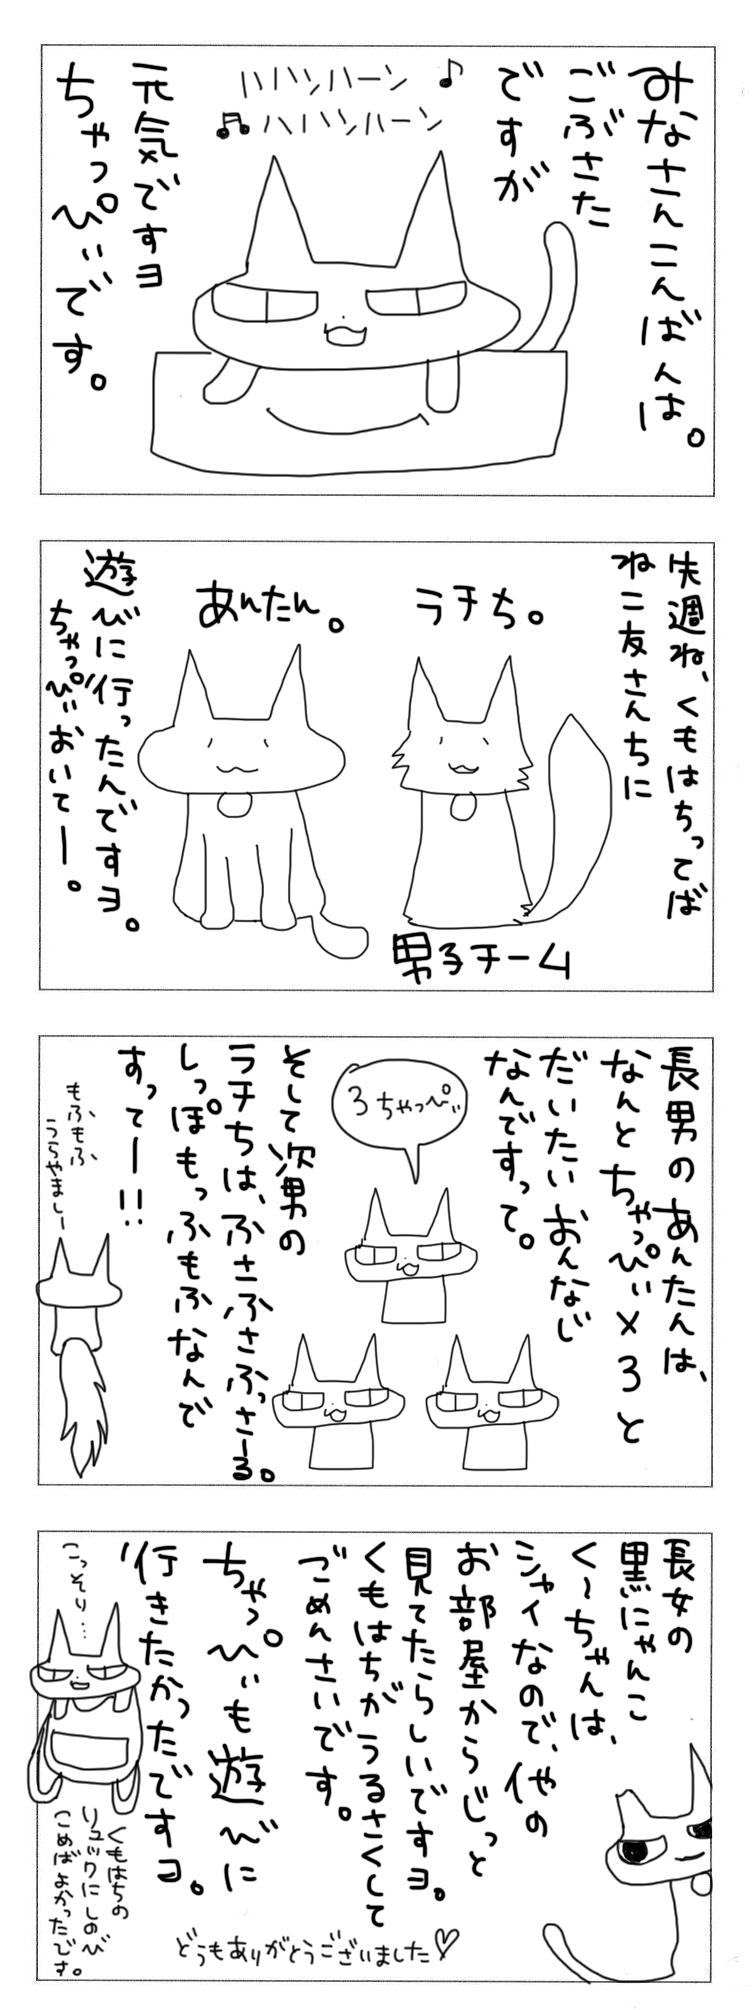 みなさんこんばんは。
ごぶさた
ですが
ハハンハーン♪
♫ハハンハーン
元気ですヨ
ちゃっぴぃです。
先週ね、くもはちってば
ねこ友さんちに
ラチち。
あんたん。
男子チーム
遊びに行ったんですヨ。
ちゃっぴぃおいてー。
長男のあんたんは、
なんとちゃっぴぃ×3と
だいたいおんなじ
なんですって。
3ちゃっぴぃ
そして次男の
ラチちは、ふさふさふっさーる。
しっぽもっふもふなんで
すってー!!
もふもふ
うらやましー
長女の
黒にゃんこ
く〜ちゃんは、
シャイなので、他の
お部屋からじっと
見てたらしいですヨ。
くもはちがうるさくして
ごめんさいです。
ちゃっぴぃも遊びに
行きたかったですヨ。
こっそり…
くもはちの
リュックにしのび
こめばよかったです。
どうもありがとうございました♡